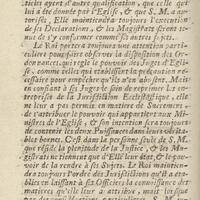 ticles ayent d'autre qualification, que celle qui
lui a été donnée par l'Eglise, & que S. M. a au-
torisée, Elle maintiendra toujours l'execution
de ses Declarations, & les Magistrats seront te-
nus de s'y conformer comme ses autres sujets.
Le Roi portera toujours une attention parti-
culiere pour faire observer la disposition des Or-
donnances, qui regle le pouvoir des Juges d'Eglise
, comme celles qui établissent la précaution ne-
cessaire pour empêcher qu'ils n'en abusent. Mais
en confiant à ses Juges le soin de reprimer les en-
treprises de la Jurisdiction Ecclesiastique, elle
ne leur a pas permis en matiere de Sacremens,
de s'attribuer le pouvoir qui appartient aux Mi-
nistres de l'Eglise, & son intention sera toujours
de contenir les deux Puissances dans leurs verita-
bles bornes. C'est dans la personne seule de S. M.
que reside la plenitude de la Justice, & les Ma-
gistrats ne tiennent que d'Elle leur état, & le pou-
voir de la rendre à ses Sujets. Le Roi maintien-
dra toujours l'ordre des Jurisdictions qu'il a éta-
blies en laissant à ses Officiers la connoissance des
matieres qu'elle leur a attribué, mais